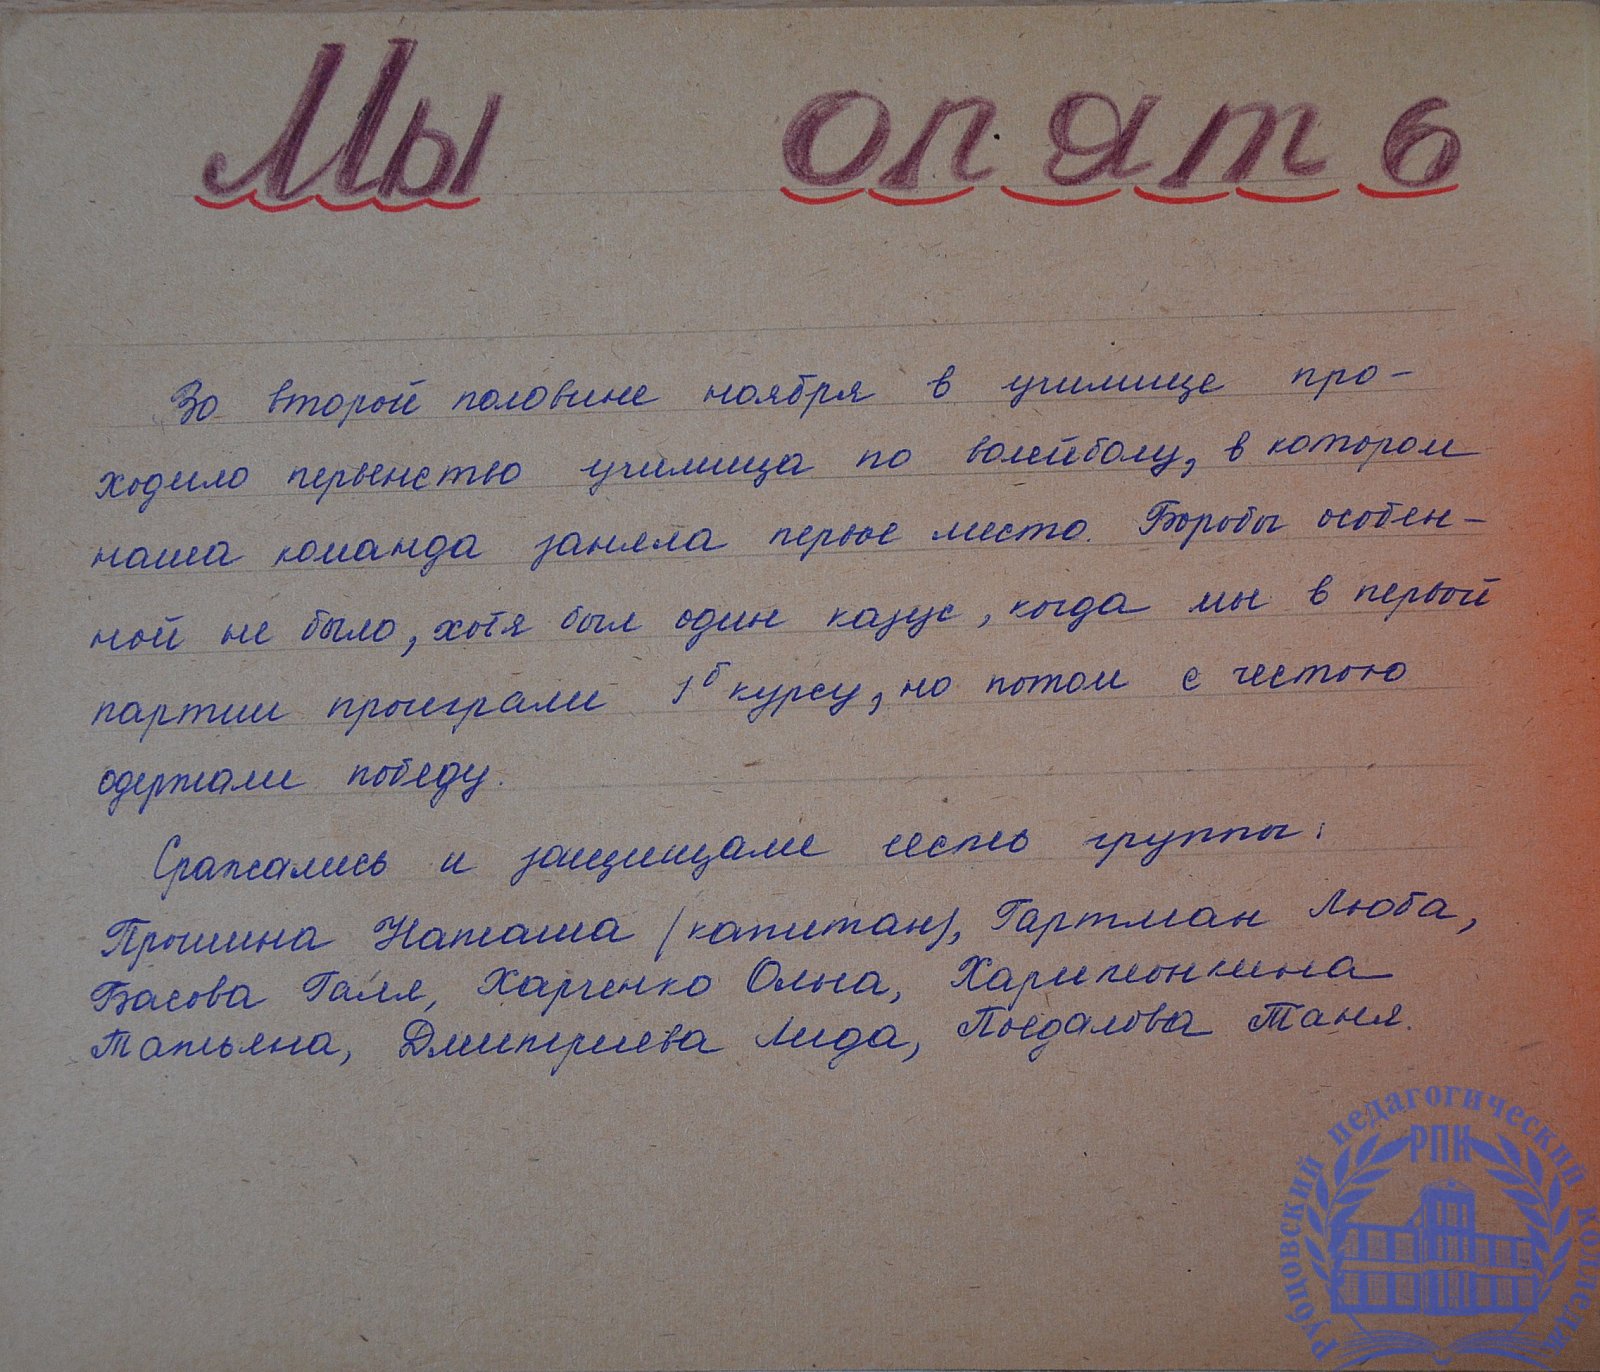 Мы опять
Во второй половине ноября в училище про-
ходило первенство училища по волейболу, в котором
наша команда заняла первое место. Борьбы особен-
ной не было, хотя был один казус, когда мы в первой
партии проиграли 1б курсу, но потом с честью
одержали победу.
Сражались и защищали честь группы:
Прошина Наташа (капитан), Гартман Люба,
Басова Галя, Харченко Ольга, Харитонкина
Татьяна, Дмитриева Лида, Поедалова Таня.
Рубцовский педагогический колледж
РПК